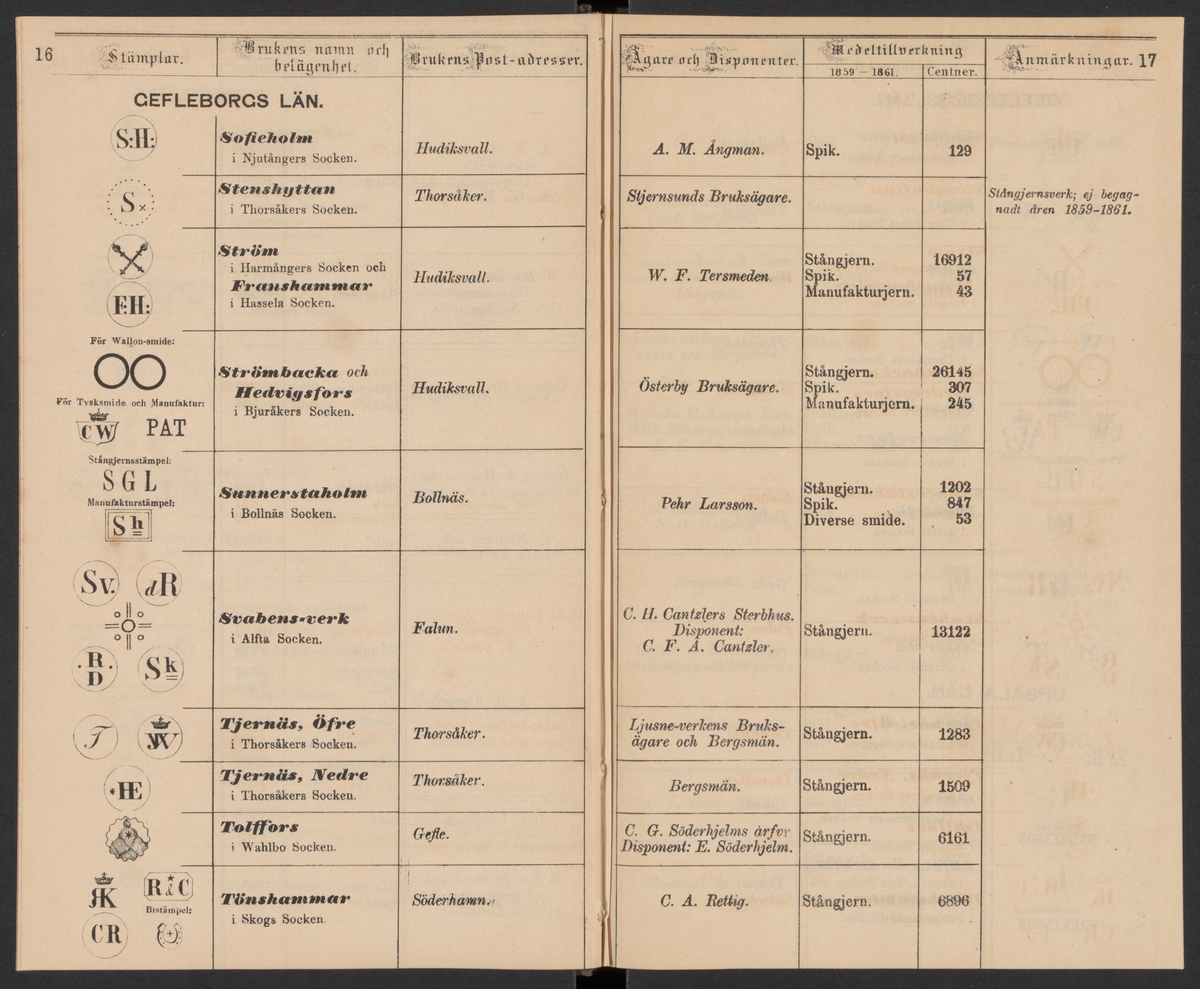 16
Stämplar.
Brukens namn och
belägenhet.
Brukens Post-adresser.
Ägare och Disponenter.
Medeltillverkning
1859 — 1861.
Centner.
Anmärkningar.
17
GEFLEBORGS LÄN.
S:H:
Sofieholm
i Njutångers Socken.
Hudiksvall.
A. M. Ångman.
Spik.
129
S×
Stenshyttan
i Thorsåkers Socken.
Thorsåker.
Stjernsunds Bruksägare.
Stångjernsverk; ej begag-
nadt åren 1859-1861.
F:H:
Ström
i Harmångers Socken och
Franshammar
i Hassela Socken.
Hudiksvall.
W. F. Tersmeden.
Stångjern. 16912
Spik. 57
Manufakturjern. 43
För Wallon-smide:
För Tysksmide och Manufaktur:
CW PAT
Strömbacka och
Hedvigsfors
i Bjuråkers Socken.
Hudiksvall.
Österby Bruksägare.
Stångjern. 26145
Spik. 307
Manufakturjern. 245
Stångjernsstämpel:
S G L
Manufakturstämpel:
Sh
Sunnerstaholm
i Bollnäs Socken.
Bollnäs.
Pehr Larsson.
Stångjern. 1202
Spik. 847
Diverse smide. 53
Sv. dR
.R.
D
Sk
Svabens-verk
i Alfta Socken.
Falun.
C. H. Cantzlers Sterbhus.
Disponent:
C. F. A. Cantzler.
Stångjern.
13122
T
Tjernäs, Öfre
i Thorsåkers Socken.
Thorsåker.
Ljusne-verkens Bruks-
ägare och Bergsmän.
Stångjern.
1283
*HE
Tjernäs, Nedre
i Thorsåkers Socken.
Thorsåker.
Bergsmän.
Stångjern.
1509
Tolffors
i Wahlbo Socken.
Gefle.
C. G. Söderhjelms arfvr
Disponent: E. Söderhjelm.
Stångjern.
6161
R&C
Bistämpel:
CR
Tönshammar
i Skogs Socken.
Söderhamn.
C. A. Rettig.
Stångjern.
6896